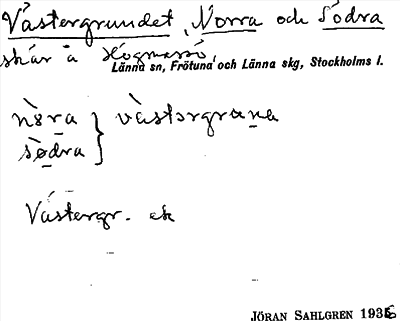 Västergrundet, Norra och Södra
skär å Högmarsö,
Länna sn, Frötuna och Länna skg, Stockholms l.
nòra } västərgruna
sødra
Västergr. ek
JÖRAN SAHLGREN 1936